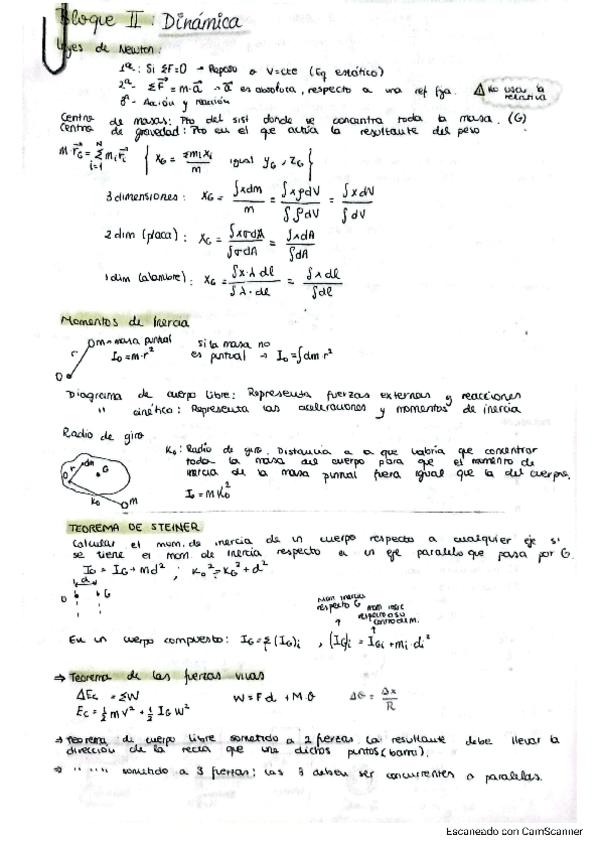 Bloque II: Dinámica
Leyes de Newton:
1ª: Si ΣF=0 → Reposo o V=cte (Eq estático)
2ª- ΣF⃗ = m·a⃗ → a⃗ es absoluta, respecto a una ref fija. △ No usar la relativa
3ª- Acción y reacción
Centro de masas: Pto del sist donde se concentra toda la masa. (G)
Centro de gravedad: Pto en el que actúa la resultante del peso
M·r⃗G = Σ mi r⃗i { XG = Σmi xi / m igual yG, zG }
3 dimensiones: XG = ∫xdm / m = ∫xρdV / ∫ρdV = ∫xdV / ∫dV
2 dim (placa): XG = ∫xσdA / ∫σdA = ∫xdA / ∫dA
1 dim (alambre): XG = ∫x·λ dl / ∫λ·dl = ∫x dl / ∫dl
Momentos de Inercia
m=masa puntual
I₀=m·r²
si la masa no es puntual → I₀=∫dm r²
r
O
Diagrama de cuerpo libre: Representa fuerzas externas y reacciones
" cinético: Representa las aceleraciones y momentos de inercia
Radio de giro
K₀: Radio de giro. Distancia a la que habría que concentrar
toda la masa del cuerpo para que el momento de
inercia de la masa puntual fuera igual que la del cuerpo.
I₀ = m K₀²
dm
r
G
O
K₀
m
TEOREMA DE STEINER
Calcular el mom. de inercia de un cuerpo respecto a cualquier eje si
se tiene el mom. de inercia respecto a un eje paralelo que pasa por G.
I₀ = IG + md² ; K₀² = KG² + d²
d
O
G
Mom inercia
respecto G
En un cuerpo compuesto: IG = Σ(IG)i , (IG)i = IGi + mi·di²
→ Teorema de las fuerzas vivas
ΔEc = ΣW W = F d + M·θ Δθ = Δx / R
Ec = ½ m v² + ½ IG W²
→ Teorema de cuerpo libre sometido a 2 fuerzas la resultante debe llevar la
dirección de la recta que une dichos puntos (barra).
→ " " " sometido a 3 fuerzas: las 3 deben ser concurrentes o paralelas.
Escaneado con CamScanner